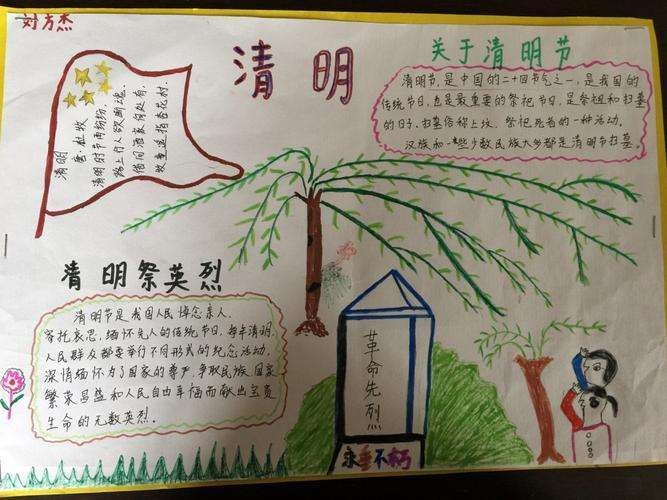 刘方杰
清明
关于清明节
清明
唐·杜牧
清明时节雨纷纷,
路上行人欲断魂。
借问酒家何处有,
牧童遥指杏花村。
清明节,是中国的二十四节气之一,是我国的
传统节日,也是最重要的祭祀节日,是祭祖和扫墓
的日子。扫墓俗称上坟,祭祀死者的一种活动。
汉族和一些少数民族大多都是清明节扫墓。
清明祭英烈
清明节是我国人民悼念亲人、
寄托哀思,缅怀先人的传统节日,每年清明,
人民群众都要举行不同形式的纪念活动,
深情缅怀为了国家的尊严,争取民族、国家
繁荣昌盛和人民自由幸福而献出宝贵
生命的无数英烈。
革命先烈
永垂不朽